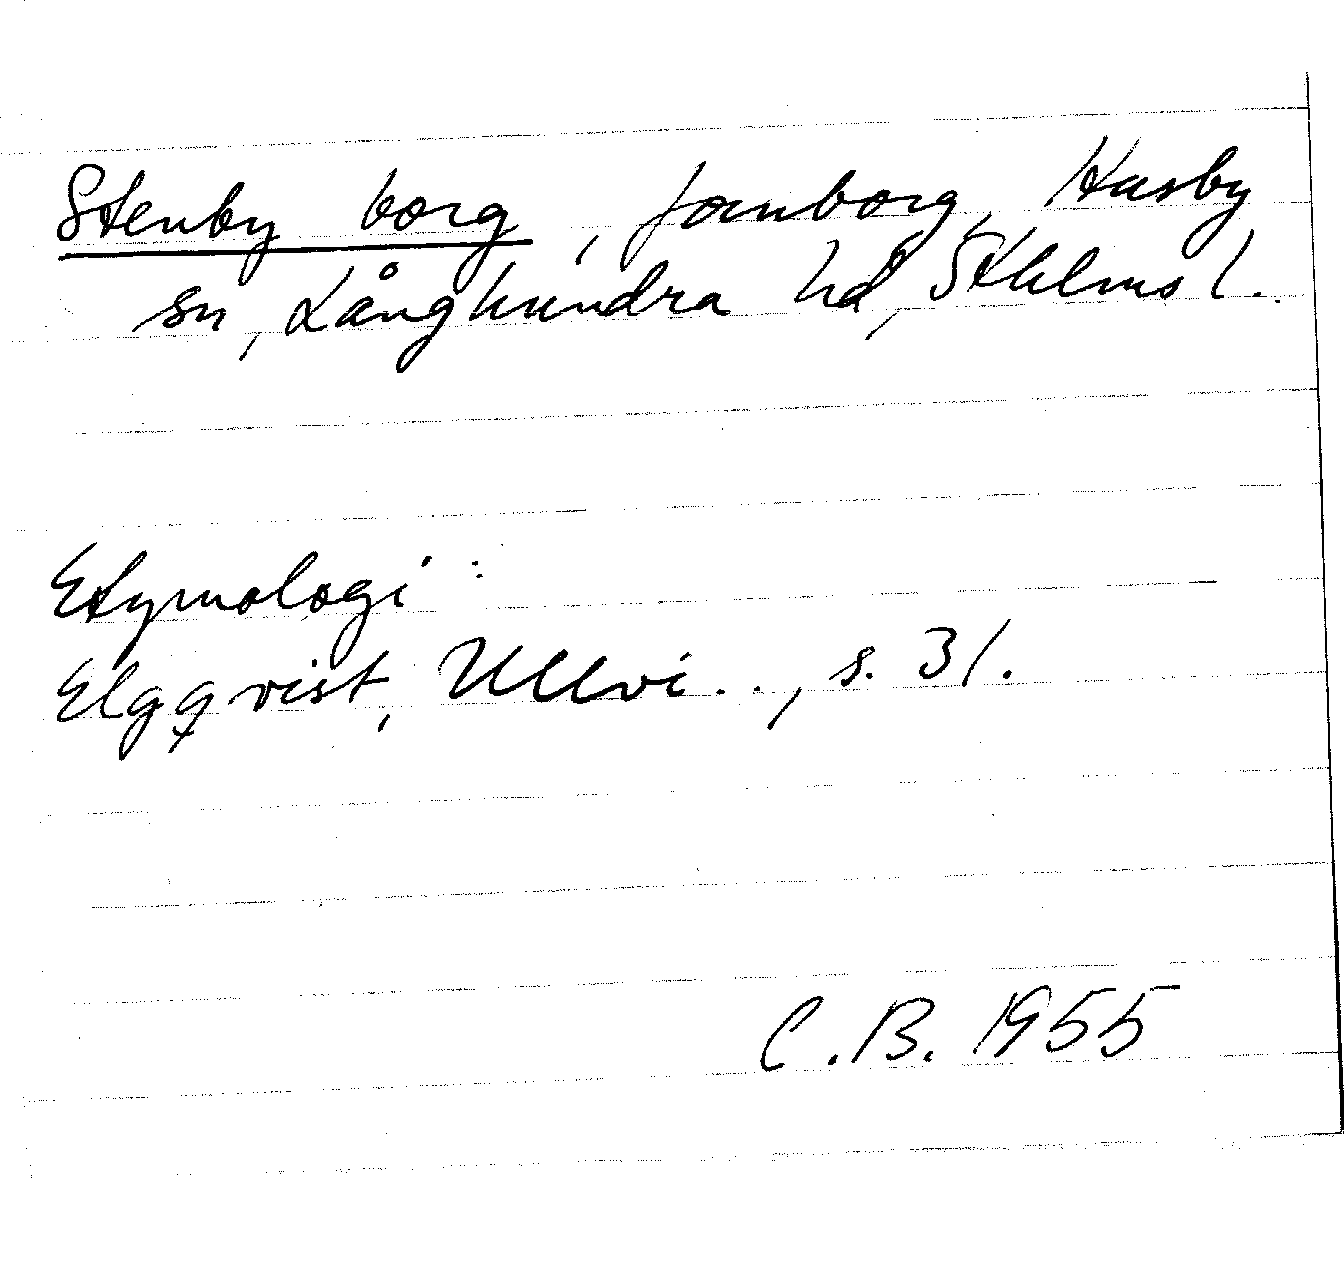 Stenby borg, fornborg, Husby
sn, Långhundra hd, Sthlms l.
Etymologi:
Elgqvist, Ullvi . . , s. 31.
C.B. 1955